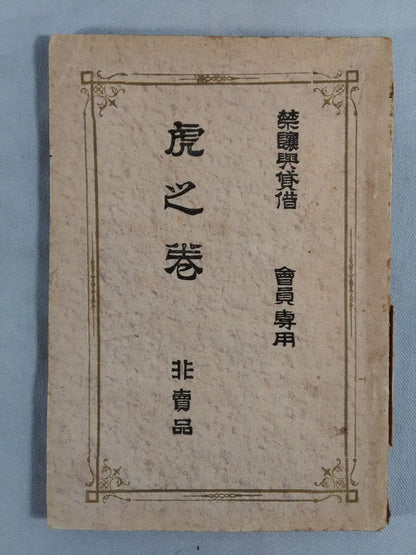 禁讓與貸借 會員專用
虎之巻
非賣品